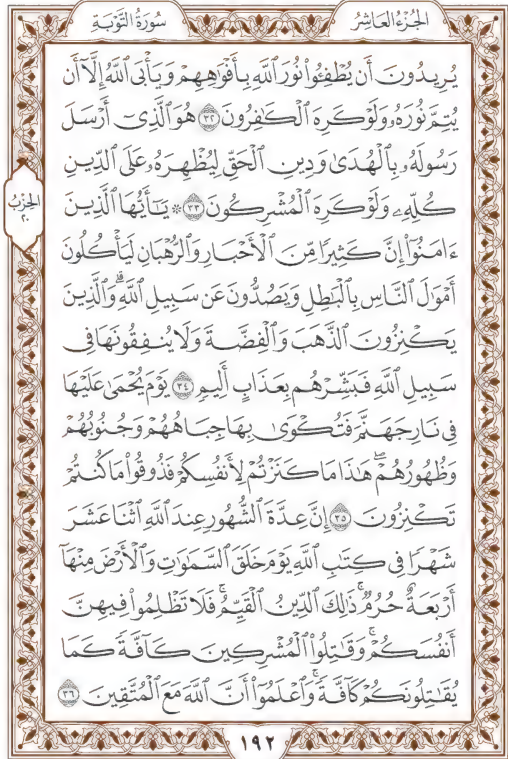 الجزء العاشر
سورة التوبة
يُرِيدُونَ أَن يُطْفِـُٔوا۟ نُورَ ٱللَّهِ بِأَفْوَٰهِهِمْ وَيَأْبَى ٱللَّهُ إِلَّآ أَن
يُتِمَّ نُورَهُۥ وَلَوْ كَرِهَ ٱلْكَٰفِرُونَ ٣٢ هُوَ ٱلَّذِىٓ أَرْسَلَ
رَسُولَهُۥ بِٱلْهُدَىٰ وَدِينِ ٱلْحَقِّ لِيُظْهِرَهُۥ عَلَى ٱلدِّينِ
كُلِّهِۦ وَلَوْ كَرِهَ ٱلْمُشْرِكُونَ ٣٣ ۞ يَٰٓأَيُّهَا ٱلَّذِينَ
الحزب
٢٠
ءَامَنُوٓا۟ إِنَّ كَثِيرًا مِّنَ ٱلْأَحْبَارِ وَٱلرُّهْبَانِ لَيَأْكُلُونَ
أَمْوَٰلَ ٱلنَّاسِ بِٱلْبَٰطِلِ وَيَصُدُّونَ عَن سَبِيلِ ٱللَّهِ ۗ وَٱلَّذِينَ
يَكْنِزُونَ ٱلذَّهَبَ وَٱلْفِضَّةَ وَلَا يُنفِقُونَهَا فِى
سَبِيلِ ٱللَّهِ فَبَشِّرْهُم بِعَذَابٍ أَلِيمٍ ٣٤ يَوْمَ يُحْمَىٰ عَلَيْهَا
فِى نَارِ جَهَنَّمَ فَتُكْوَىٰ بِهَا جِبَاهُهُمْ وَجُنُوبُهُمْ
وَظُهُورُهُمْ ۖ هَٰذَا مَا كَنَزْتُمْ لِأَنفُسِكُمْ فَذُوقُوا۟ مَا كُنتُمْ
تَكْنِزُونَ ٣٥ إِنَّ عِدَّةَ ٱلشُّهُورِ عِندَ ٱللَّهِ ٱثْنَا عَشَرَ
شَهْرًا فِى كِتَٰبِ ٱللَّهِ يَوْمَ خَلَقَ ٱلسَّمَٰوَٰتِ وَٱلْأَرْضَ مِنْهَآ
أَرْبَعَةٌ حُرُمٌ ۚ ذَٰلِكَ ٱلدِّينُ ٱلْقَيِّمُ ۚ فَلَا تَظْلِمُوا۟ فِيهِنَّ
أَنفُسَكُمْ ۚ وَقَٰتِلُوا۟ ٱلْمُشْرِكِينَ كَآفَّةً كَمَا
يُقَٰتِلُونَكُمْ كَآفَّةً ۚ وَٱعْلَمُوٓا۟ أَنَّ ٱللَّهَ مَعَ ٱلْمُتَّقِينَ ٣٦
١٩٢